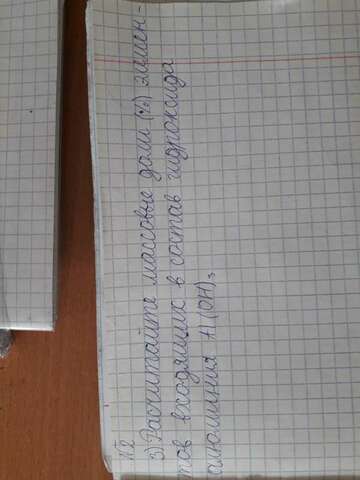 №2
3) Расчитайте массовые доли (%) элемен-
тов входящих в состав гидроксида
алюминия Al(OH)₃